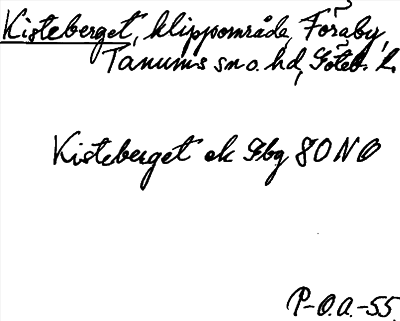 Kisteberget, klippområde, Föraby,
Tanums sn o. hd, Göteb. l.
Kisteberget ek Gbg 80 NO
P-O.A.-55.